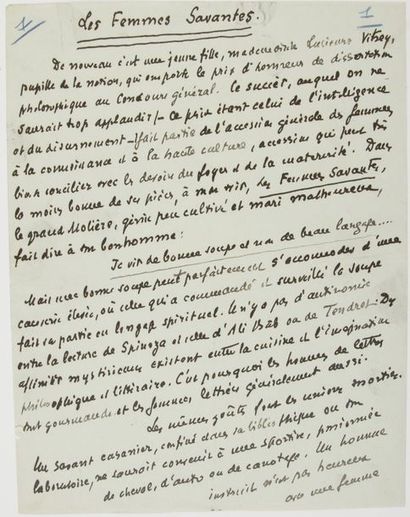 1 Les Femmes Savantes. 1
De nouveau c'est une jeune fille, mademoiselle Vitrey,
pupille de la nation, qui emporte le prix d'honneur de dissertation
philosophique au Concours général. Ce succès, auquel on ne
saurait trop applaudir — ce prix étant celui de l'intelligence
et du discernement — fait partie de l'accession générale des femmes
à la connaissance et à la haute culture, accession qui peut très
bien se concilier avec les devoirs du foyer et de la maternité. Dans
la moins bonne de ses pièces, à mon avis, Les Femmes Savantes,
le grand Molière, génie peu cultivé et mari malheureux,
fait dire à son bonhomme :
Je vis de bonne soupe et non de beau langage....
Mais une bonne soupe peut parfaitement s'accommoder d'une
causerie élevée, où celle qui a commandé et surveillé la soupe
fait sa partie en langage spirituel. Il n'y a pas d'antinomie
entre la lecture de Spinoza et celle d'Ali Bab ou de Tendret. Des
affinités mystérieuses existent entre la cuisine et l'imagination
philosophique et littéraire. C'est pourquoi les hommes de lettres
sont gourmands et les femmes lettrées généralement aussi.
Les mêmes goûts font les unions assorties.
Un savant casanier, confiné dans sa bibliothèque ou son
laboratoire, ne saurait convenir à une sportive, passionnée
de cheval, d'auto ou de canotage. Un homme
instruit n'est pas heureux
avec une femme